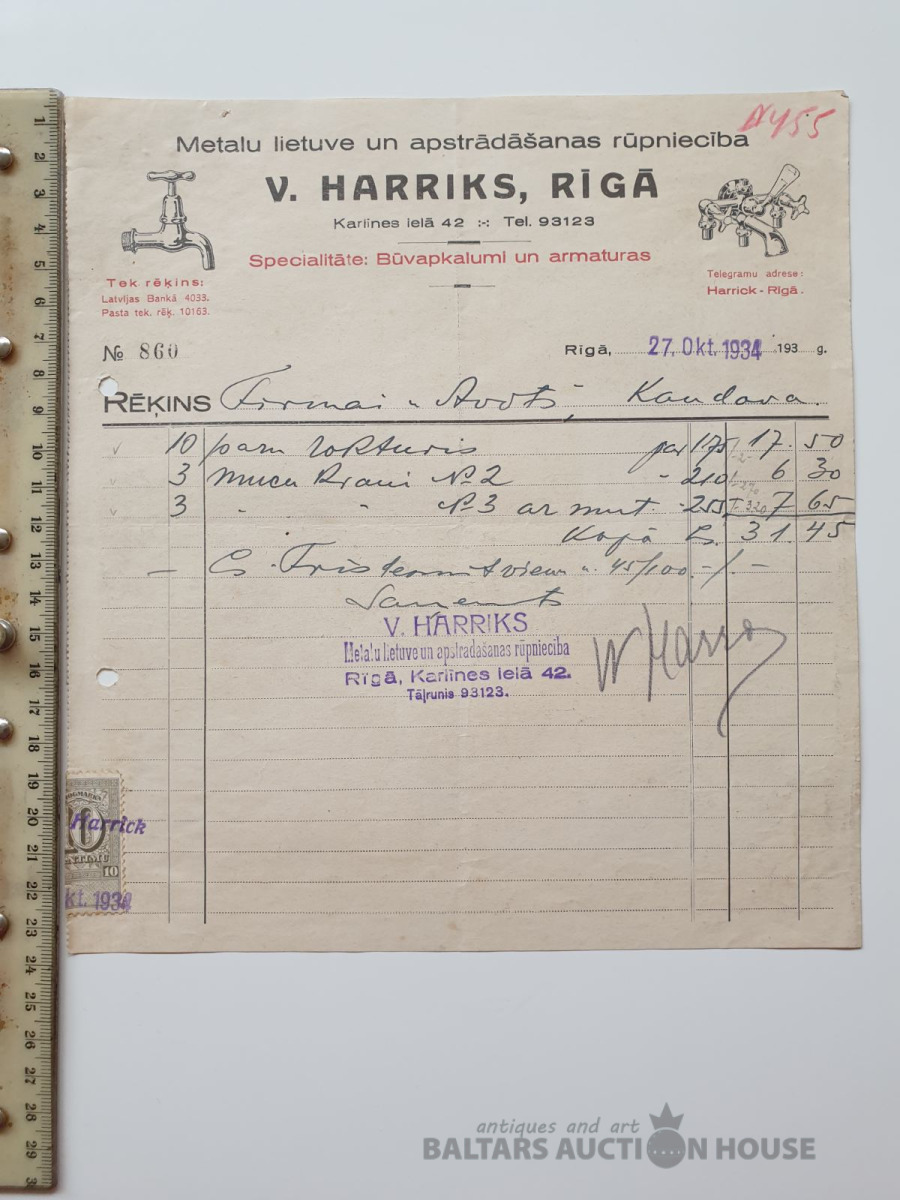 N 455
Metalu lietuve un apstrādāšanas rūpniecība
V. HARRIKS, RĪGĀ
Karlines ielā 42 :-: Tel. 93123
Specialitāte: Būvapkalumi un armaturas
Tek. rēķins:
Latvijas Bankā 4033.
Pasta tek. rēķ. 10163.
Telegramu adrese:
Harrick - Rīgā.
№ 860
Rīgā, 27. Okt. 1934 193 g.
RĒĶINS Firmai "Avots", Kandava.
10 pam rokturis par 175 17. 50
3 mucu krani № 2 - 210 6 30
3 " " № 3 ar mut. - 255 7 65
Kopā Ls. 31.45
45/100
Saņemts
V. HARRIKS
Metalu lietuve un apstrādāšanas rūpniecība
Rīgā, Karlines ielā 42.
Tālrunis 93123.
Harrick
10
kt. 1934
1 2 3 4 5 6 7 8 9 10 11 12 13 14 15 16 17 18 19 20 21 22 23 24 25 26 27 28 29
antiques and art
BALTARS AUCTION HOUSE